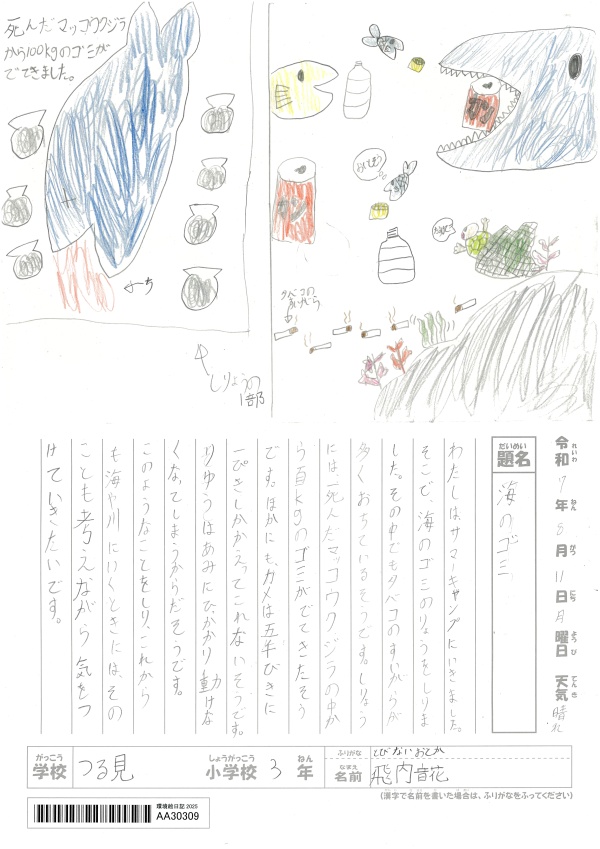 死んだマッコウクジラ
から100kgのゴミが
でてきました。
しりょうの
1部
タバコの
すいがら
令和7年8月11日月曜日 天気 晴れ
れいわ ねん がつ にち ようび てんき
だいめい
題名
海のゴミ
わたしは、サマーキャンプにいきました。
そこで、海のゴミのりょうをしりま
した。その中でもタバコのすいがらが
多くおちているそうです。しりょう
には、死んだマッコウクジラの中か
ら百kgのゴミがでてきたそう
です。ほかにも、カメは五半ぴきに
一ぴきしかかえってこれないそうです。
りゆうはあみにひっかかり動けな
くなってしまうからだそうです。
このようなことをしり、これから
も海や川にいくときには、その
ことも考えながら気をつ
けていきたいです。
がっこう
学校
つる見
しょうがっこう
小学校
3
ねん
年
ふりがな
とびないおとか
なまえ
名前
飛内音花
(漢字で名前を書いた場合は、ふりがなをふってください)
環境絵日記 2025
AA30309